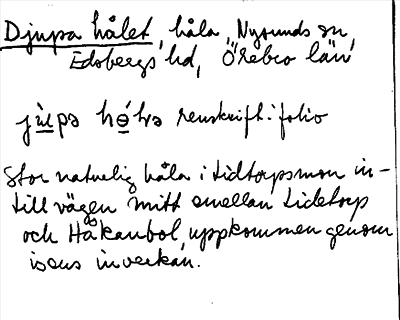 Djupa hålet, håla, Nysunds sn,
Edsbergs hd, Örebro län
renskrift i folio
Stor naturlig håla i Lidtorpsmon in-
till vägen mitt emellan Lidetorp
och Håkanbol, uppkommen genom
isens inverkan.